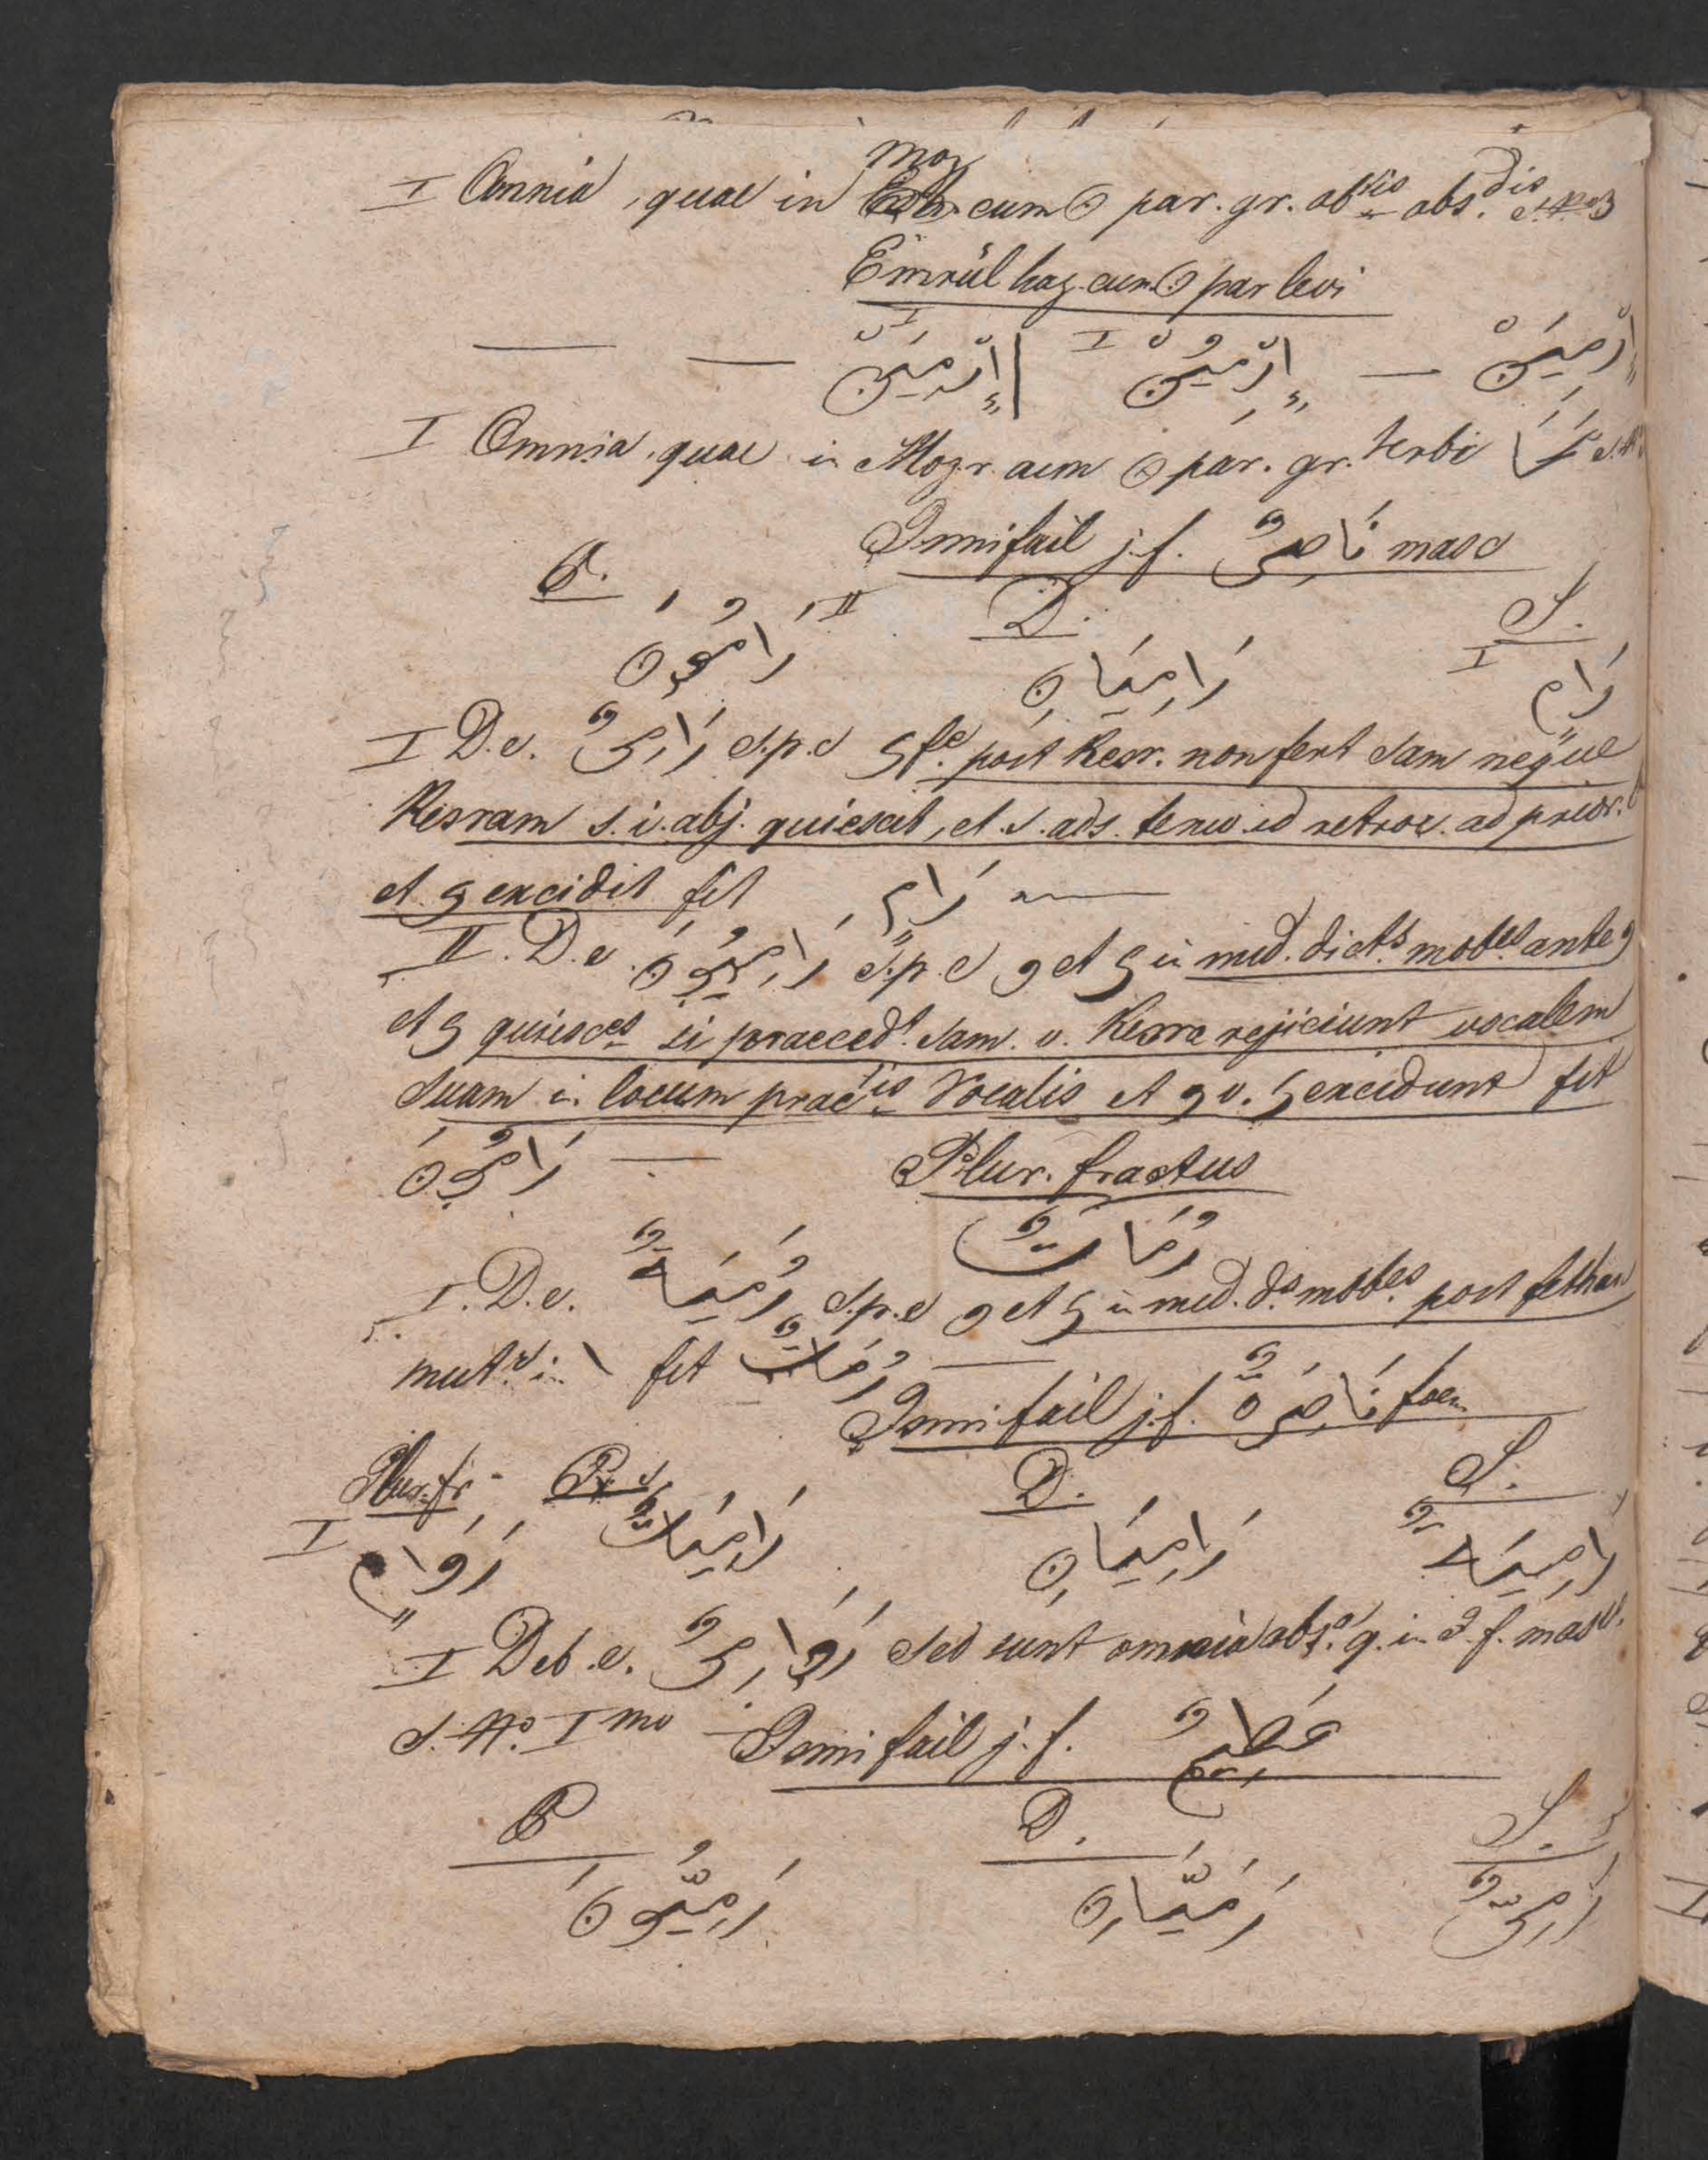 moz
I Omnia, quae in cum ن par. gr. ab
Emrül haz. cum ن par levi
اِرْمِيَنْ — اِرْمِيُنْ I | اِرْمِيَنَّ I — —
I Omnia, quae in Mozr. cum ن par. gr. Verbi
Ismi fail j. f. نَاصِرٌ masc
P. D. S.
رَامُونَ II رَامِيَانِ رَامٍ I
I D. e. رَامِىٌ s. p. e ى post Kesr. non fert dam neque
Kesram s. i. abj. quiescit, et s. ads. tenw. id retroc. ad prior.
et ى excidit fit رَامٍ —
II. D. e. رَامِيُونَ s. p. e و et ى in med. dict.s mob.es ante و
et ى quiesc.es si praeced.t dam. v. Kesra rejiciunt vocalem
suam i. locum prae.tis Vocalis et و v. ى excidunt fit
رَامُونَ — Plur. fractus
رُمَاتٌ
I. D. e. رُمَيَةٌ s. p. e و et ى in med. d.s mob.es post fetham
mut.r i. ا fit رُمَاتٌ —
Ismi fail j. f. نَاصِرَةٌ foem
Plur. fr. P. s. D. S.
I رَوَامٍ رَامِيَاتٌ رَامِيَانِ رَامِيَةٌ
I Deb. e. رَوَامِىٌ sed sunt omnia abs.a q. i. I. f. masc.
s. No. I mo — Ismi fail j. f. عَظِيمٌ
P D. S.
رَمِيُّونَ رَمِيَّانِ رَمِىٌّ